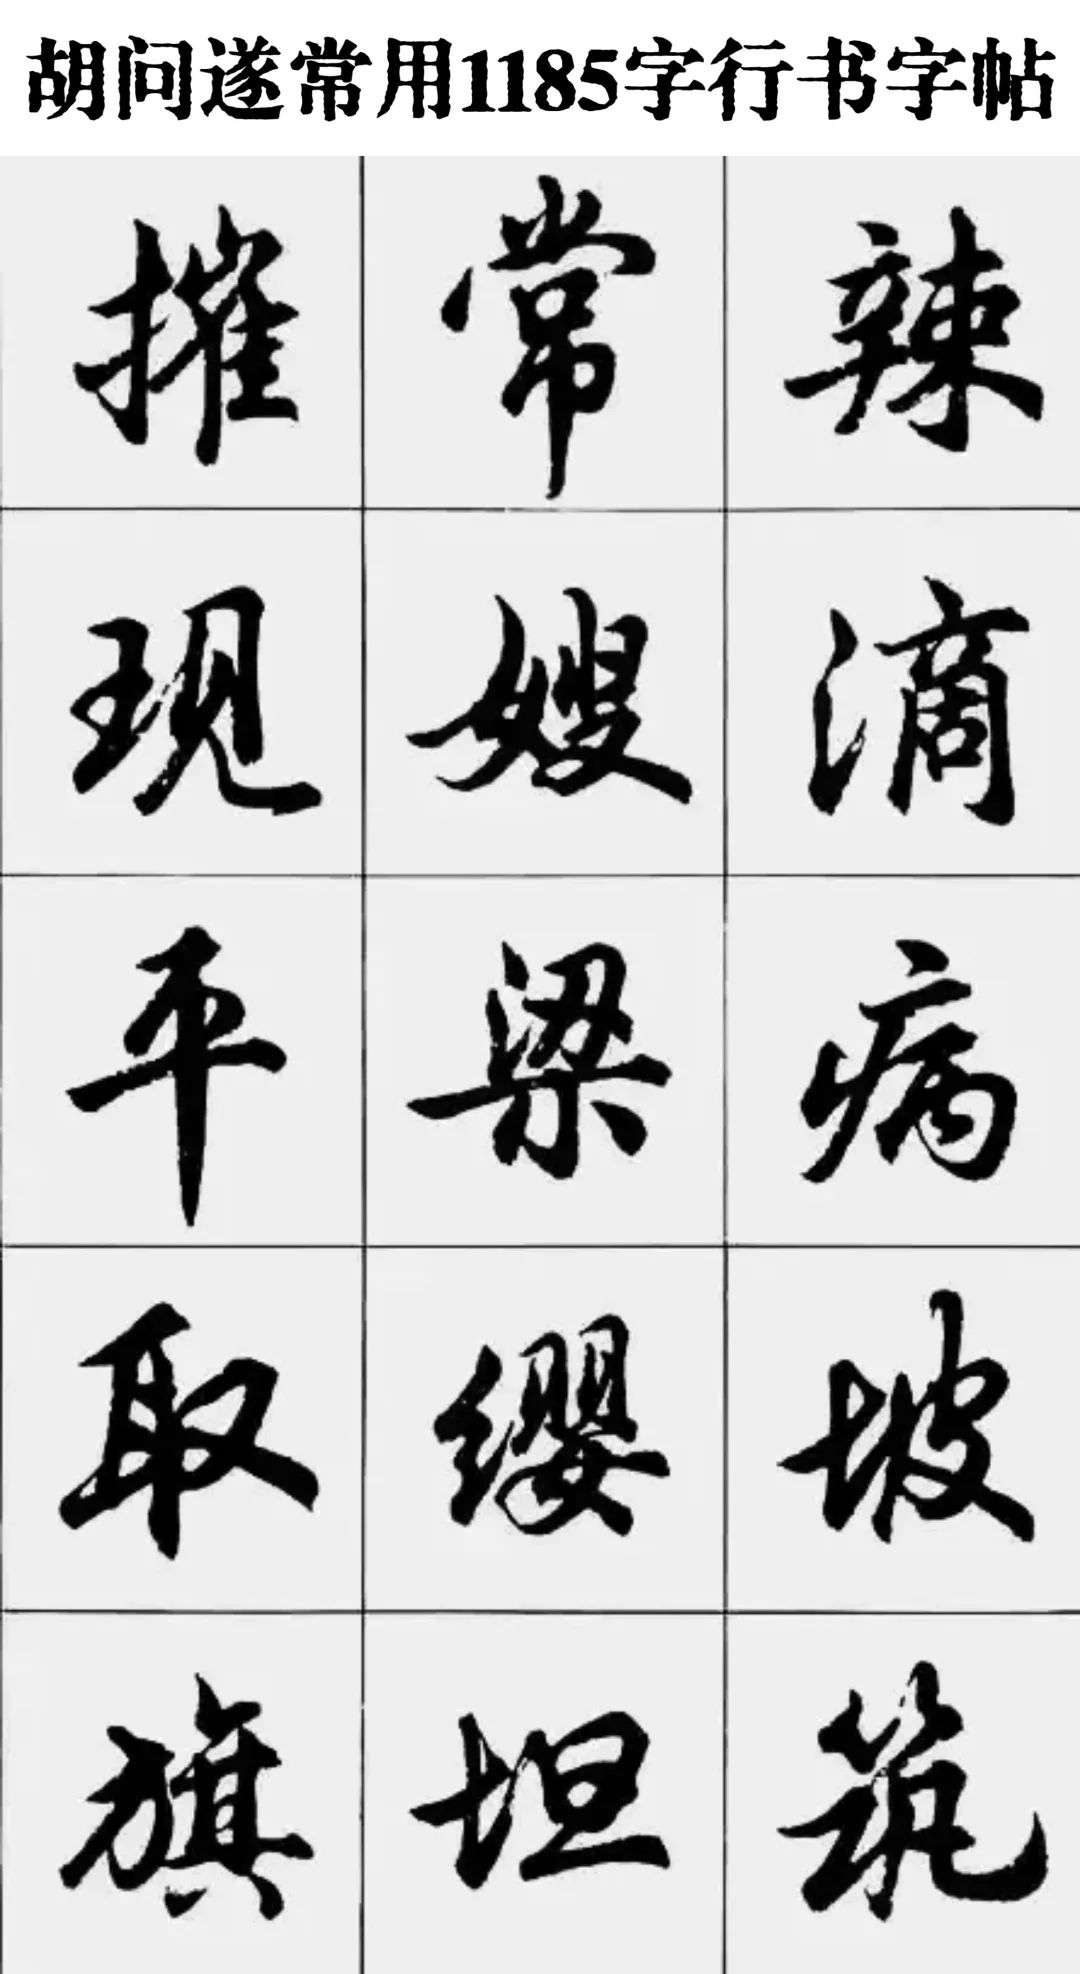 胡问遂常用1185字行书字帖
摧常辣
现嫂滴
平梁病
取缨坡
旗坦筑